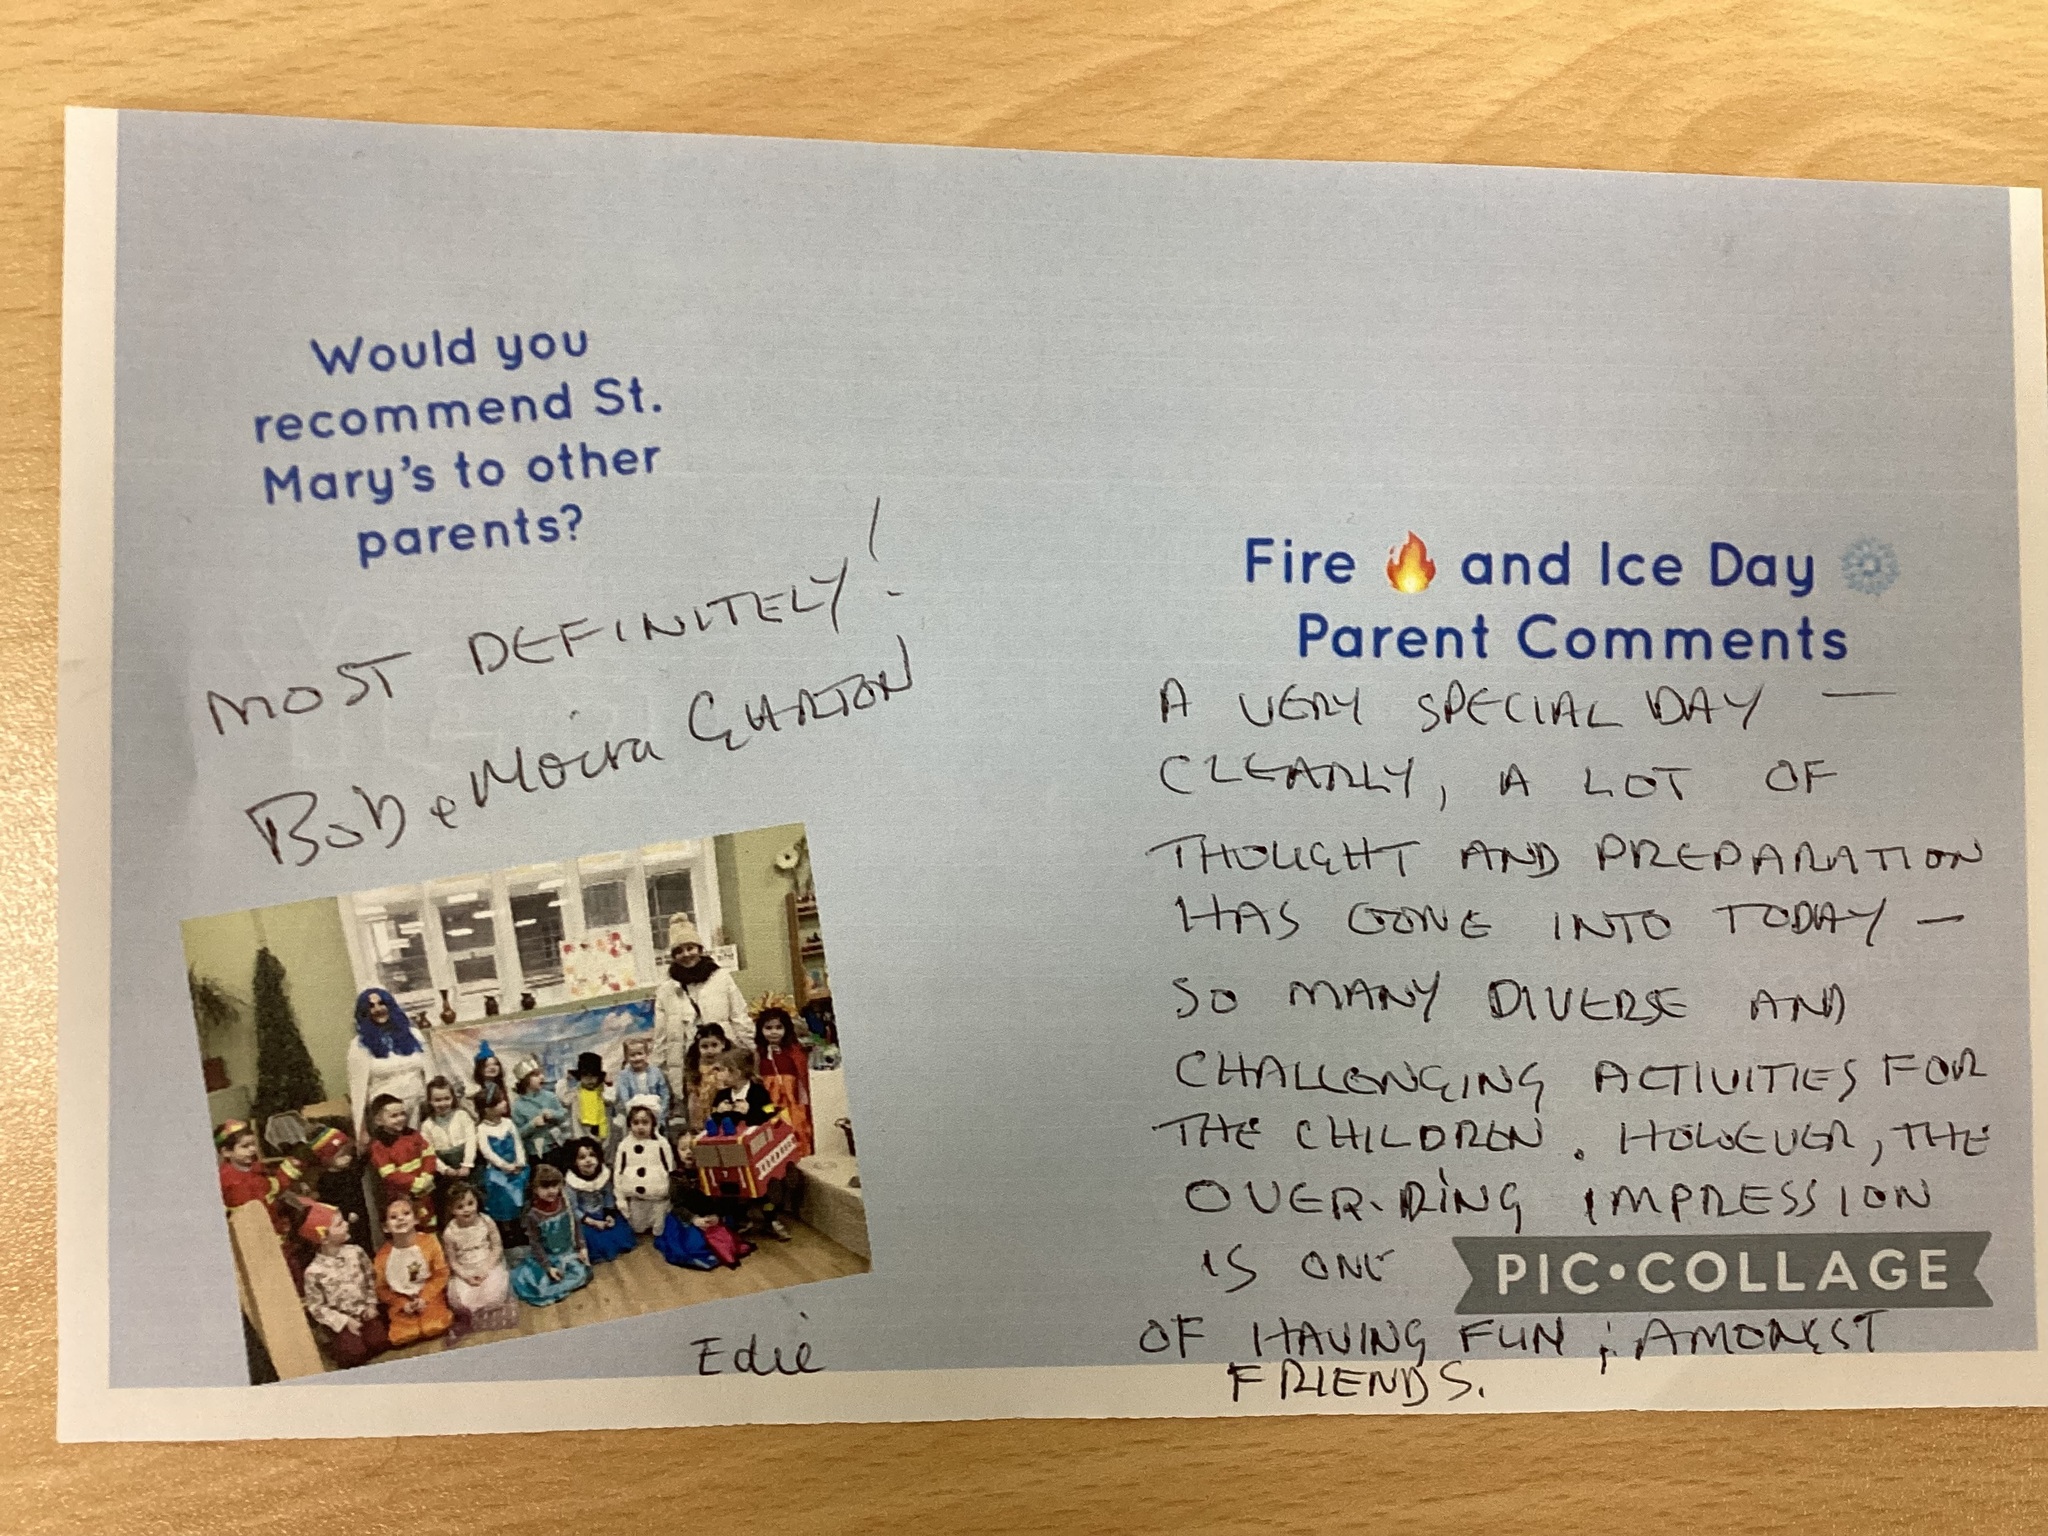 Would you
recommend St.
Mary's to other
parents?
MOST DEFINITELY!
Bob & Moira GHARTON
Edie
Fire 🔥 and Ice Day ❄
Parent Comments
A VERY SPECIAL DAY —
CLEARLY, A LOT OF
THOUGHT AND PREPARATION
HAS GONE INTO TODAY —
SO MANY DIVERSE AND
CHALLENGING ACTIVITIES FOR
THE CHILDREN. HOWEVER, THE
OVER-RIDING IMPRESSION
IS ONE
PIC•COLLAGE
OF HAVING FUN ; AMONGST
FRIENDS.